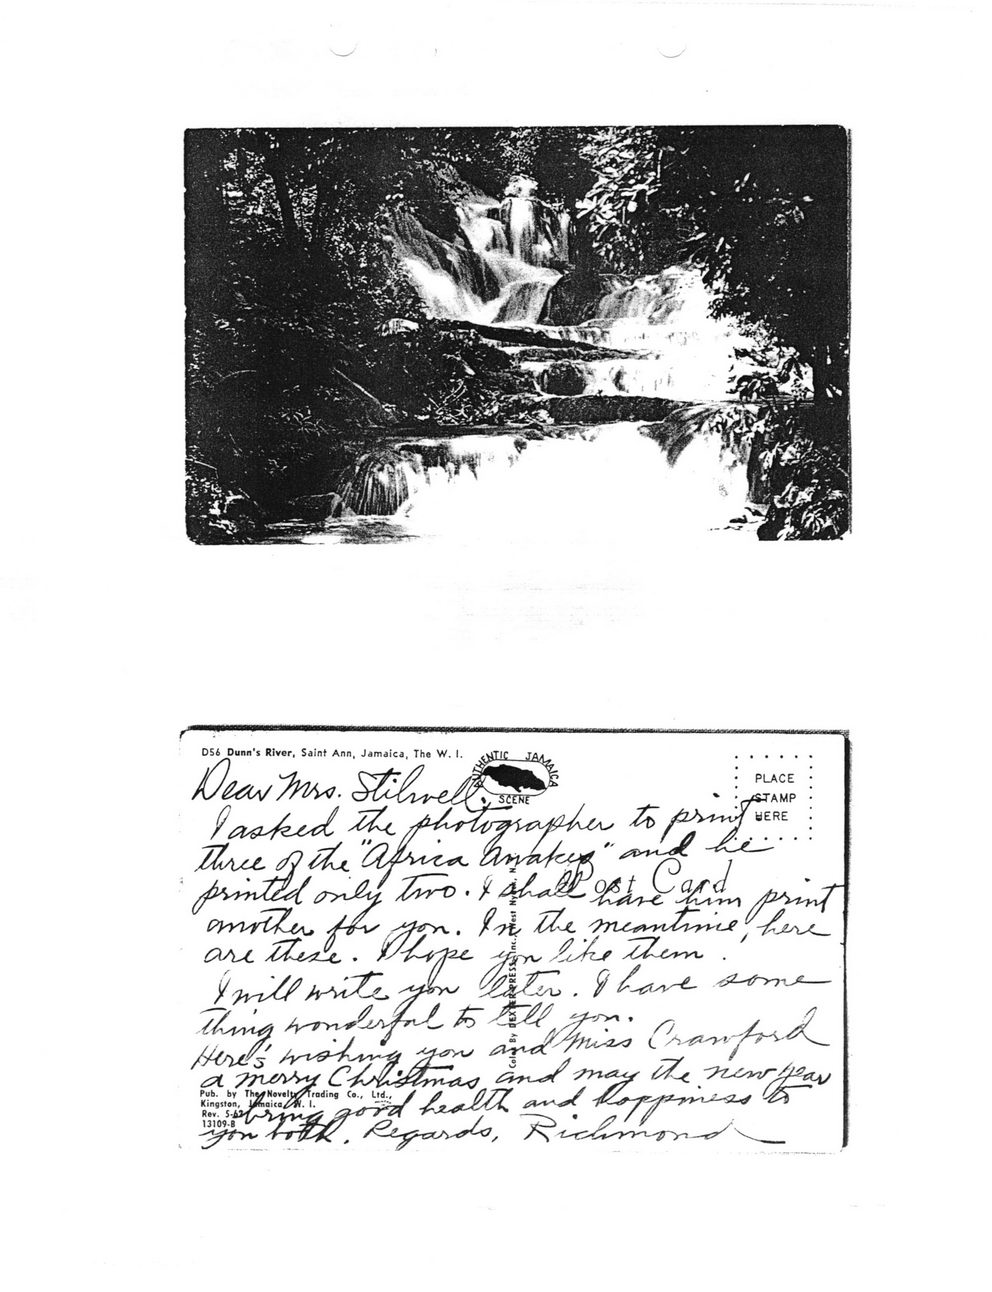 D56 Dunn's River, Saint Ann, Jamaica, The W. I.
AUTHENTIC JAMAICA
SCENE
PLACE
STAMP
HERE
Post Card
Dear Mrs. Stilwell,
I asked the photographer to print
three of the "Africa Awakes" and he
printed only two. I shall have him print
another for you. In the meantime, here
are these. I hope you like them.
I will write you later. I have some
thing wonderful to tell you.
Here's wishing you and Miss Crawford
a merry Christmas and may the new year
bring good health and happiness to
you both. Regards, Richmond
Pub. by The Novelty Trading Co., Ltd.,
Kingston, Jamaica, W. I.
Rev. 5-62
13109-B
Color By DEXTER PRESS, Inc., West Nyack, N.